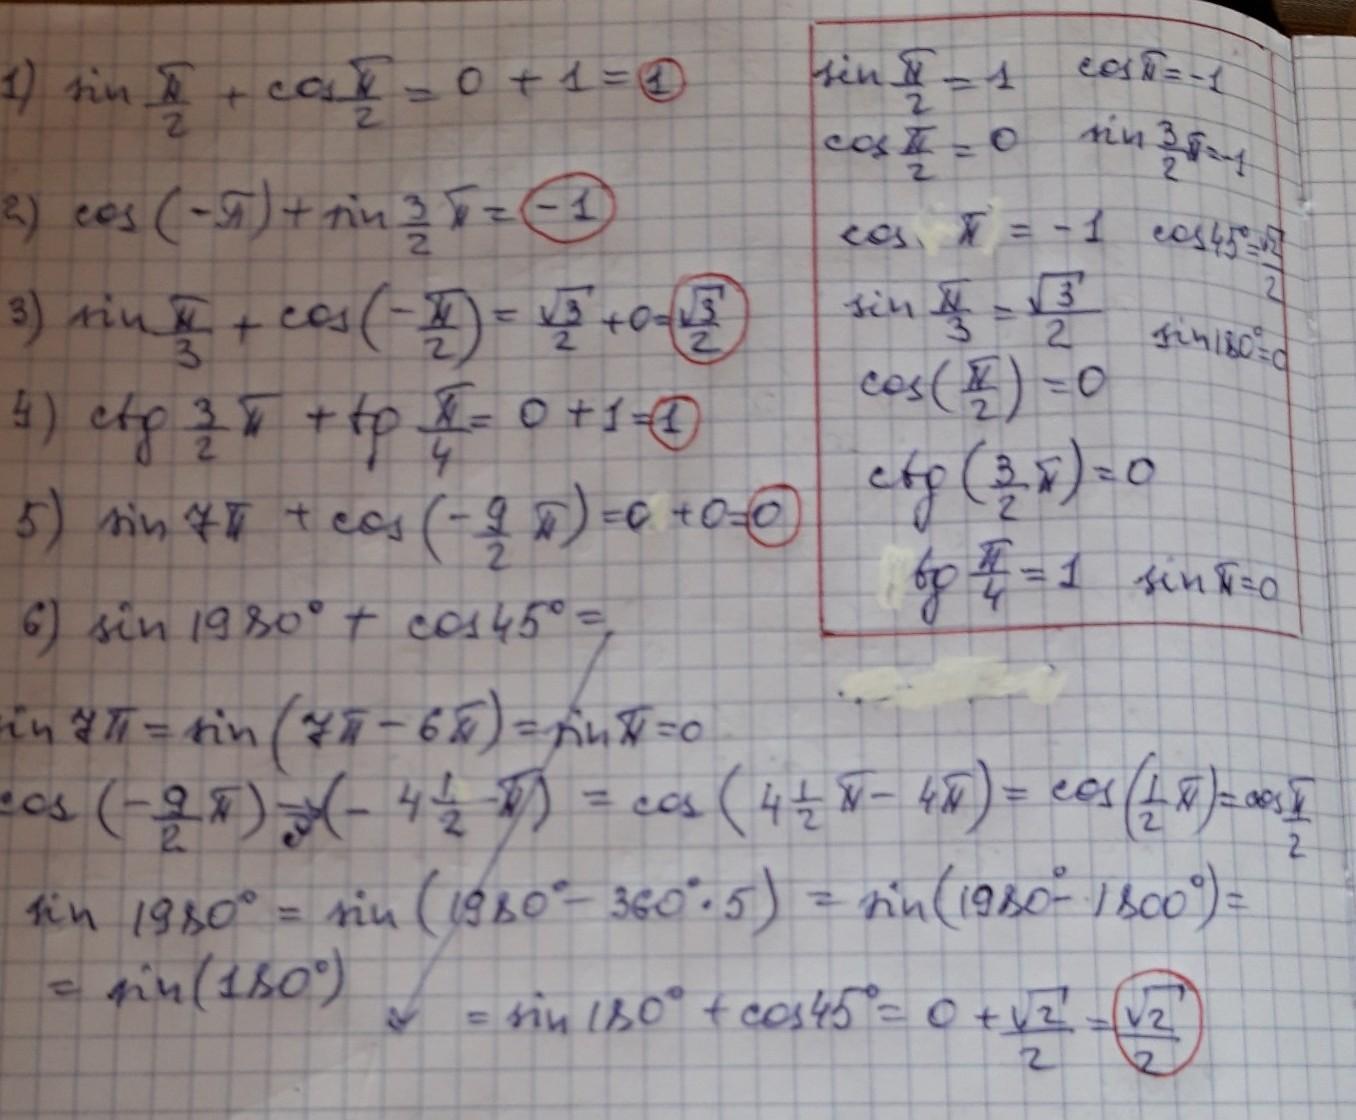 1) sin π/2 + cos π/2 = 0 + 1 = 1
2) cos (-π) + sin 3/2 π = -1
3) sin π/3 + cos (-π/2) = √3/2 + 0 = √3/2
4) ctg 3/2 π + tg π/4 = 0 + 1 = 1
5) sin 7π + cos (-9/2 π) = 0 + 0 = 0
6) sin 1980° + cos 45° =
sin π/2 = 1 cos π = -1
cos π/2 = 0 sin 3/2 π = -1
cos π = -1 cos 45° = √2/2
sin π/3 = √3/2 sin 180° = 0
cos (π/2) = 0
ctg (3/2 π) = 0
tg π/4 = 1 sin π = 0
sin 7π = sin (7π - 6π) = sin π = 0
cos (-9/2 π) = (- 4 1/2 π) = cos (4 1/2 π - 4π) = cos (1/2 π) = cos π/2
sin 1980° = sin (1980° - 360° · 5) = sin (1980° - 1800°) =
= sin (180°)
= sin 180° + cos 45° = 0 + √2/2 = √2/2